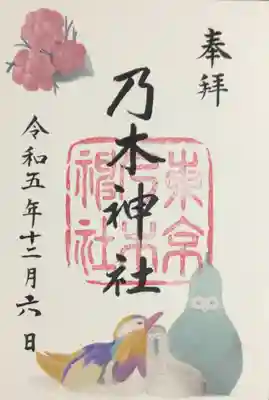 奉拝
乃木神社
東京乃木神社
令和五年十二月六日